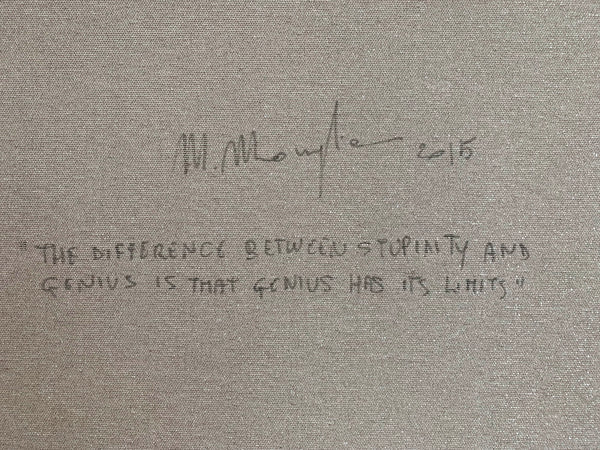 M. 2015
"THE DIFFERENCE BETWEEN STUPIDITY AND
GENIUS IS THAT GENIUS HAS ITS LIMITS"